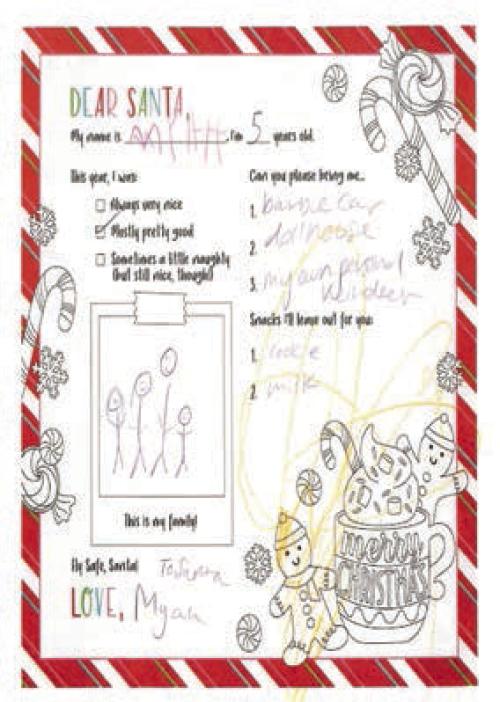 DEAR SANTA,
My name is MYAH. I'm 5 years old.
This year, I was:
Always very nice
Mostly pretty good
Sometimes a little naughty
(but still nice, though!)
This is my family!
Can you please bring me...
1. barbie car
2. dollhouse
3. my own personal
reindeer
Snacks I'll leave out for you:
1. cookie
2. milk
merry
CHRISTMAS
Fly Safe, Santa! To Santa
LOVE, Myah